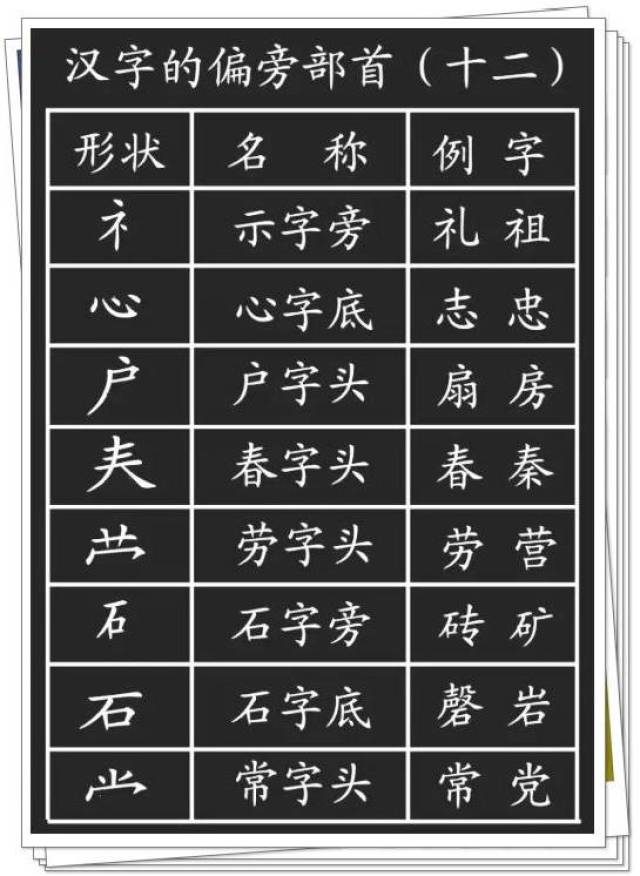 汉字的偏旁部首（十二）
形状 名 称 例 字
礻 示字旁 礼 祖
心 心字底 志 忠
户 户字头 扇 房
𡗗 春字头 春 秦
龷 劳字头 劳 营
石 石字旁 砖 矿
石 石字底 磬 岩
⺌ 常字头 常 党